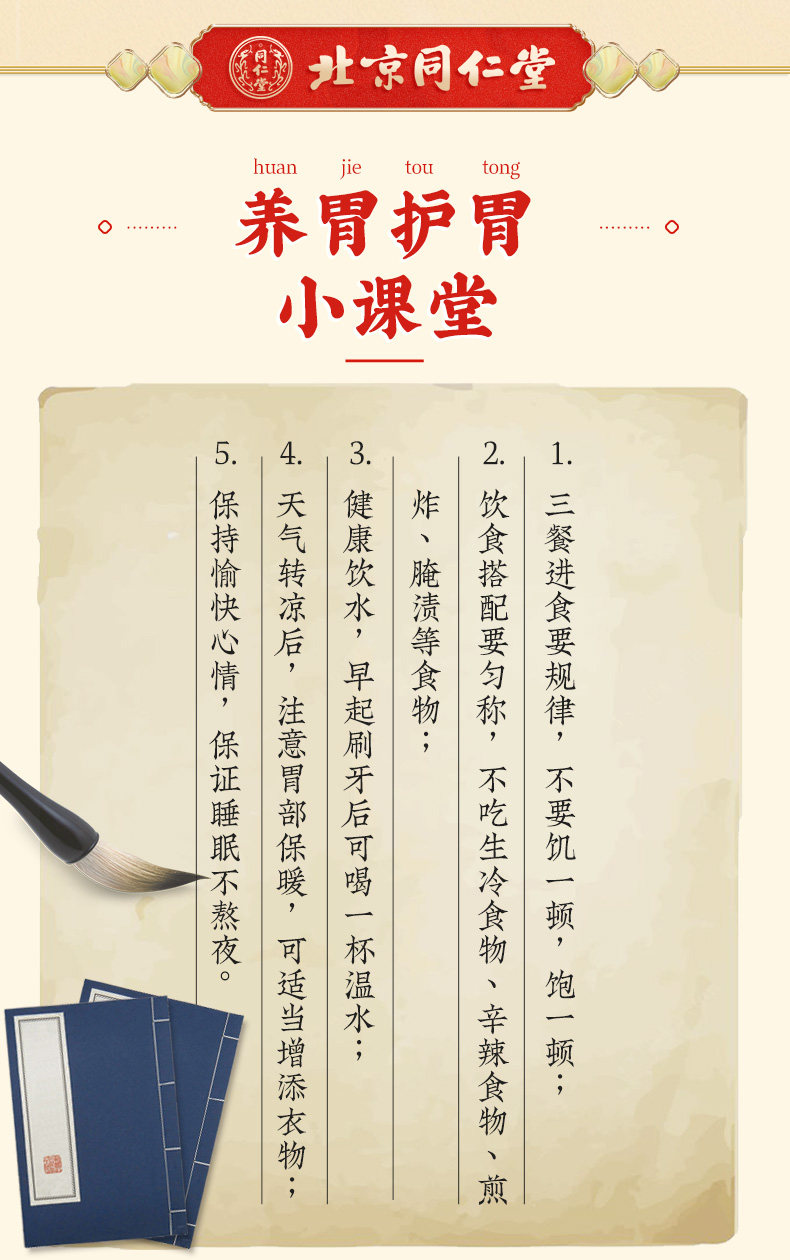 同仁堂
北京同仁堂
huan jie tou tong
养胃护胃
小课堂
1. 三餐进食要规律，不要饥一顿，饱一顿；
2. 饮食搭配要匀称，不吃生冷食物、辛辣食物、煎
炸、腌渍等食物；
3. 健康饮水，早起刷牙后可喝一杯温水；
4. 天气转凉后，注意胃部保暖，可适当增添衣物；
5. 保持愉快心情，保证睡眠不熬夜。